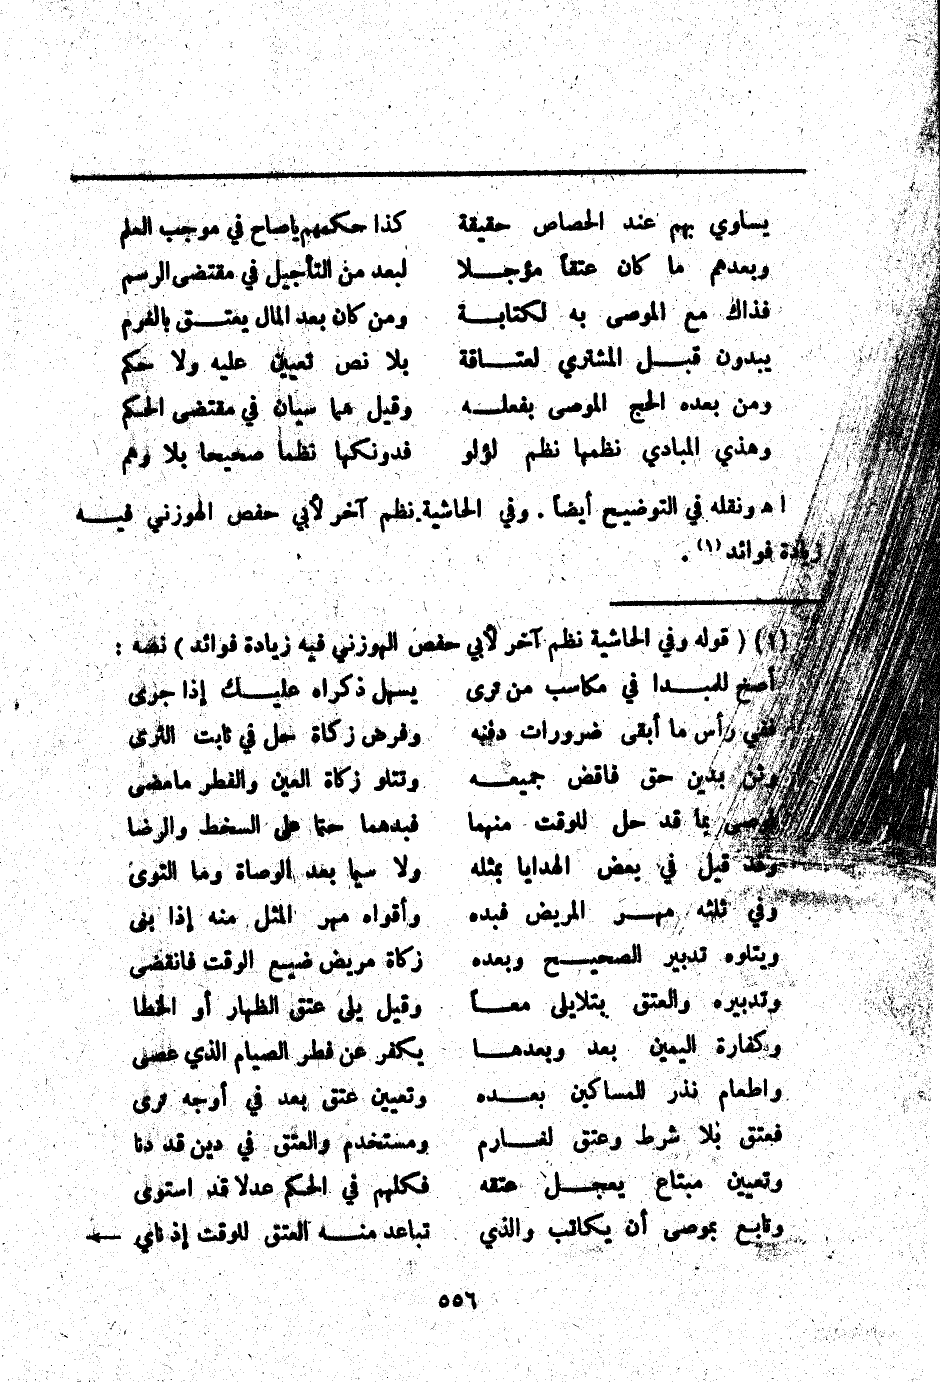 يساوي بهم عند الحصاص حقيقة كذا حكمهم ياصاح في موجب العلم
وبعدهم ما كان عتقاً مؤجلا لبعد من التأجيل في مقتضى الرسم
فذاك مع الموصى به لكتابة ومن كان بعد المال يعتق بالغرم
يبدون قبل المشتري لعتاقة بلا نص تعيين عليه ولا حكم
ومن بعده الحج الموصى بفعله وقيل هما سيان في مقتضى الحكم
وهذي المبادي نظمها نظم لؤلو فدونكها نظماً صحيحا بلا وهم
ا ه ونقله في التوضيح أيضاً . وفي الحاشية نظم آخر لأبي حفص الهوزني فيه
زيادة فوائد (١) .
(١) ( قوله وفي الحاشية نظم آخر لأبي حفص الهوزني فيه زيادة فوائد ) نصه :
أصخ للمبدا في مكاسب من ترى يسهل ذكراه عليك إذا جرى
ففي رأس ما أبقى ضرورات دفنه وفرض زكاة حل في ثابت الثرى
وثن بدين حق فاقض جميعه وتتلو زكاة العين والفطر مامضى
بما قد حل للوقت منهما فبدهما حتما على السخط والرضا
وقد قيل في بعض الهدايا بمثله ولا سيما بعد الوصاة وما التوى
وفي ثلثه مهر المريض فبده وأقواه مهر المثل منه إذا بنى
ويتلوه تدبير الصحيح وبعده زكاة مريض ضيع الوقت فانقضى
وتدبيره والعتق يتلايلى معاً وقيل يلى عتق الظهار أو الخطا
وكفارة اليمين بعد وبعدها يكفر عن فطر الصيام الذي عصى
واطعام نذر للمساكين بعده وتعيين عتق بعد في أوجه ترى
فعتق بلا شرط وعتق لغارم ومستخدم والعتق في دين قد دنا
وتعيين مبتاع يعجل عتقه فكلهم في الحكم عدلا قد استوى
وتابع بموصى أن يكاتب والذي تباعد منه العتق للوقت إذ تاي ←
٥٥٦